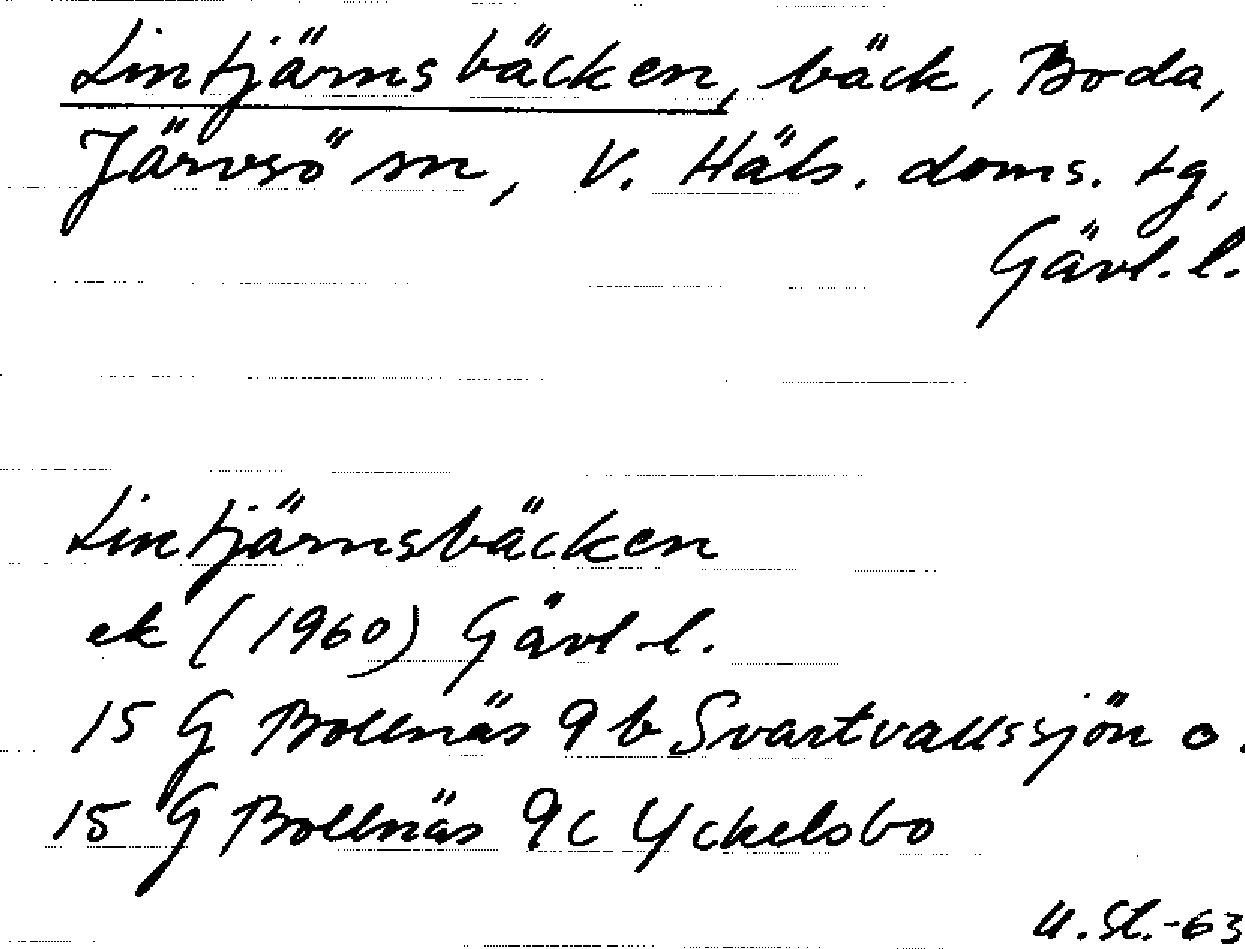 Lintjärnsbäcken, bäck, Boda,
Järvsö sn, V. Häls. doms. tg,
Gävl. l.
Lintjärnsbäcken
ek (1960) Gävl. l.
15 G Bollnäs 9 b Svartvallssjön o.
15 G Bollnäs 9c Yckelsbo
U. St.-63